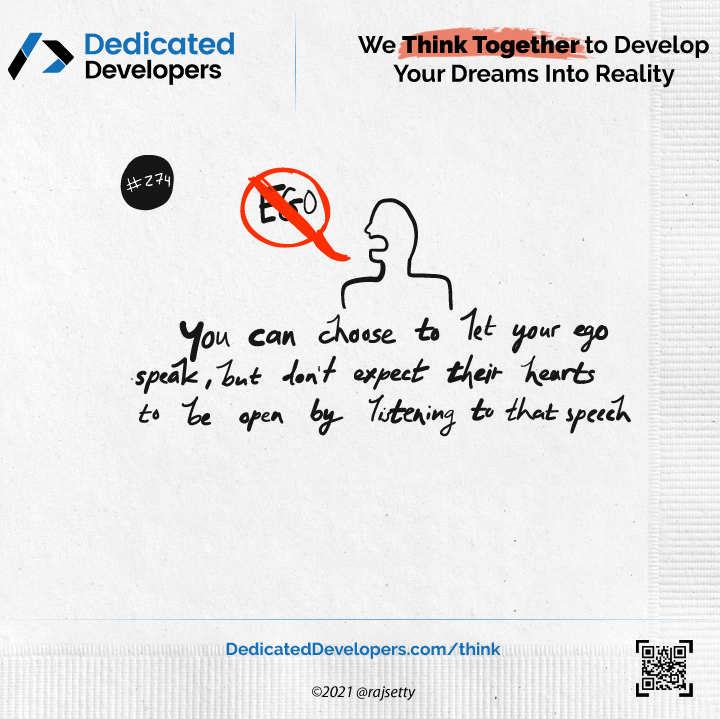 Dedicated
Developers
We Think Together to Develop
Your Dreams Into Reality
#274
EGO
You can choose to let your ego
speak, but don't expect their hearts
to be open by listening to that speech
DedicatedDevelopers.com/think
©2021 @rajsetty